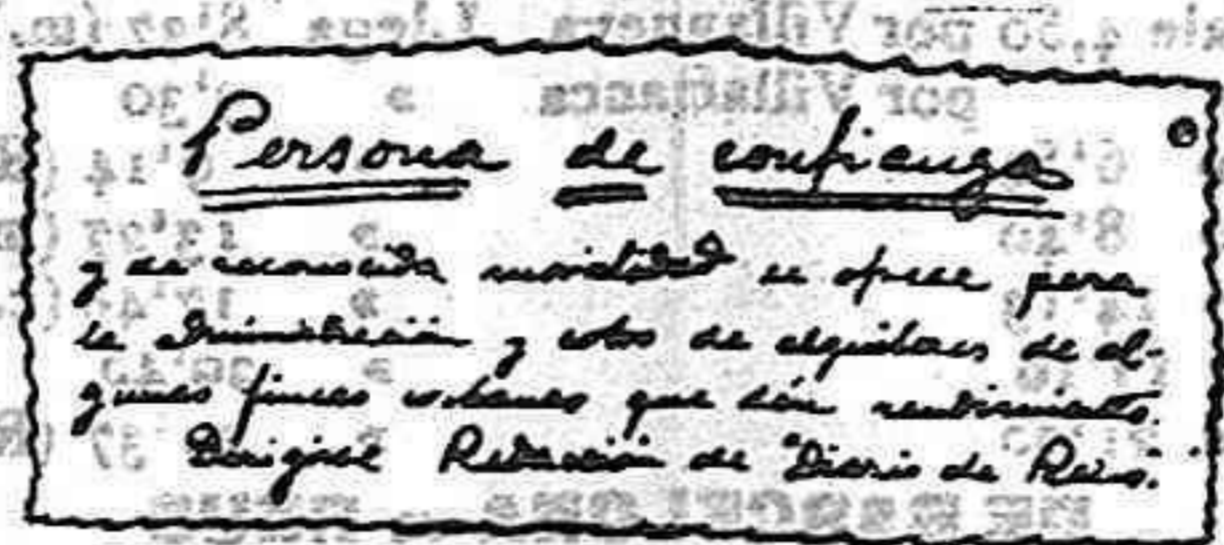 Persona de confianza
y de reconocida moralidad se ofrece para
la administración y cobro de alquileres de al-
gunas fincas urbanas que den rendimiento.
Dirigirse Redacción de "Diario de Reus."